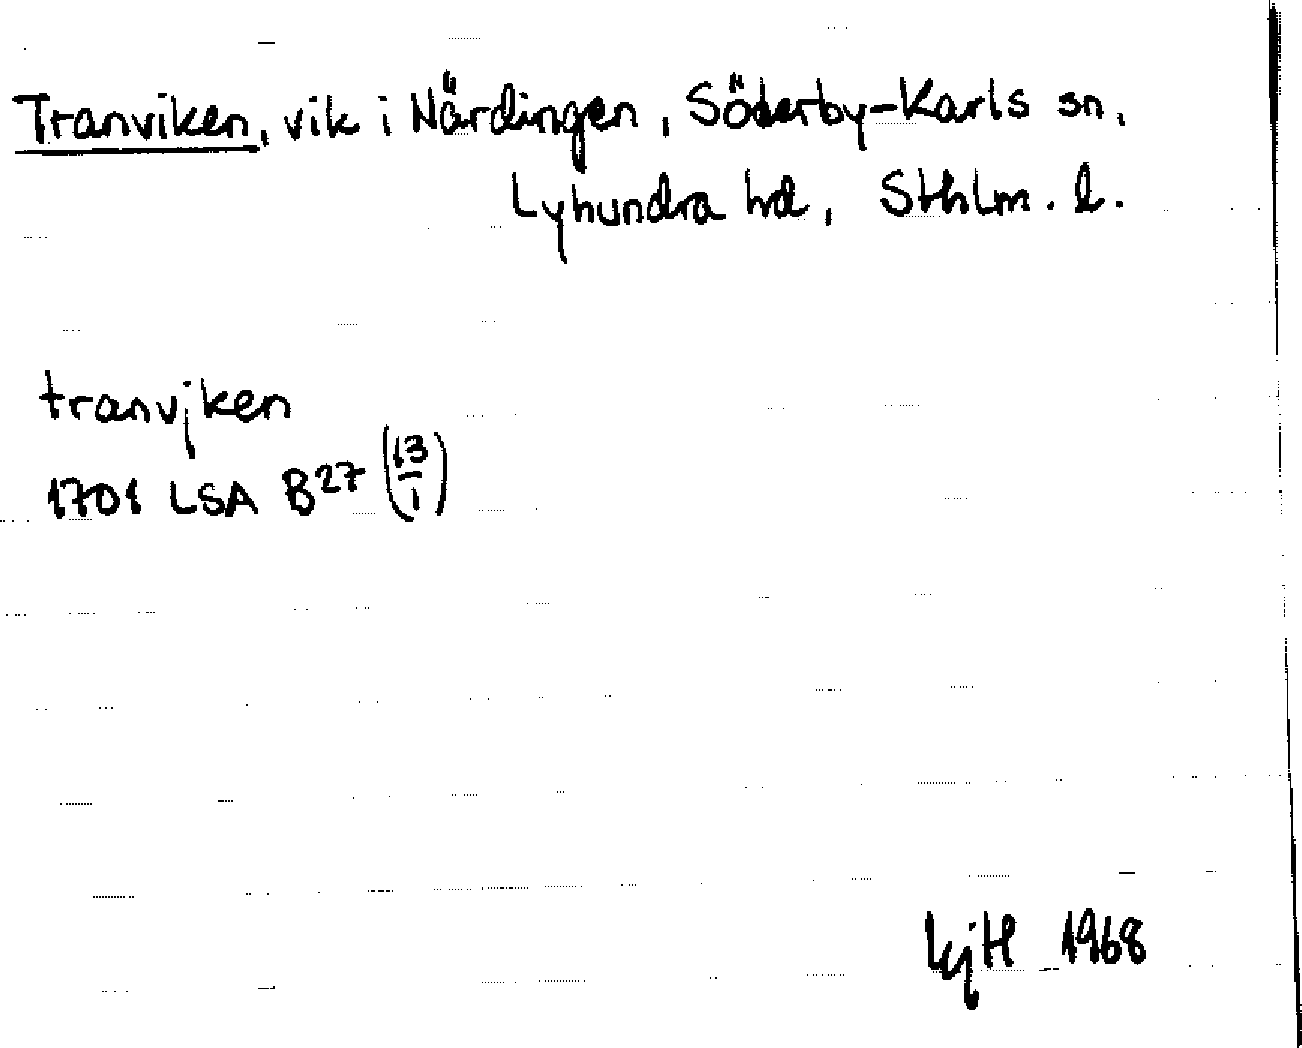 Tranviken, vik i Närdingen, Söderby-Karls sn,
Lyhundra hd, Sthlm. l.
tranvjken
1701 LSA B27 (13/1)
1968